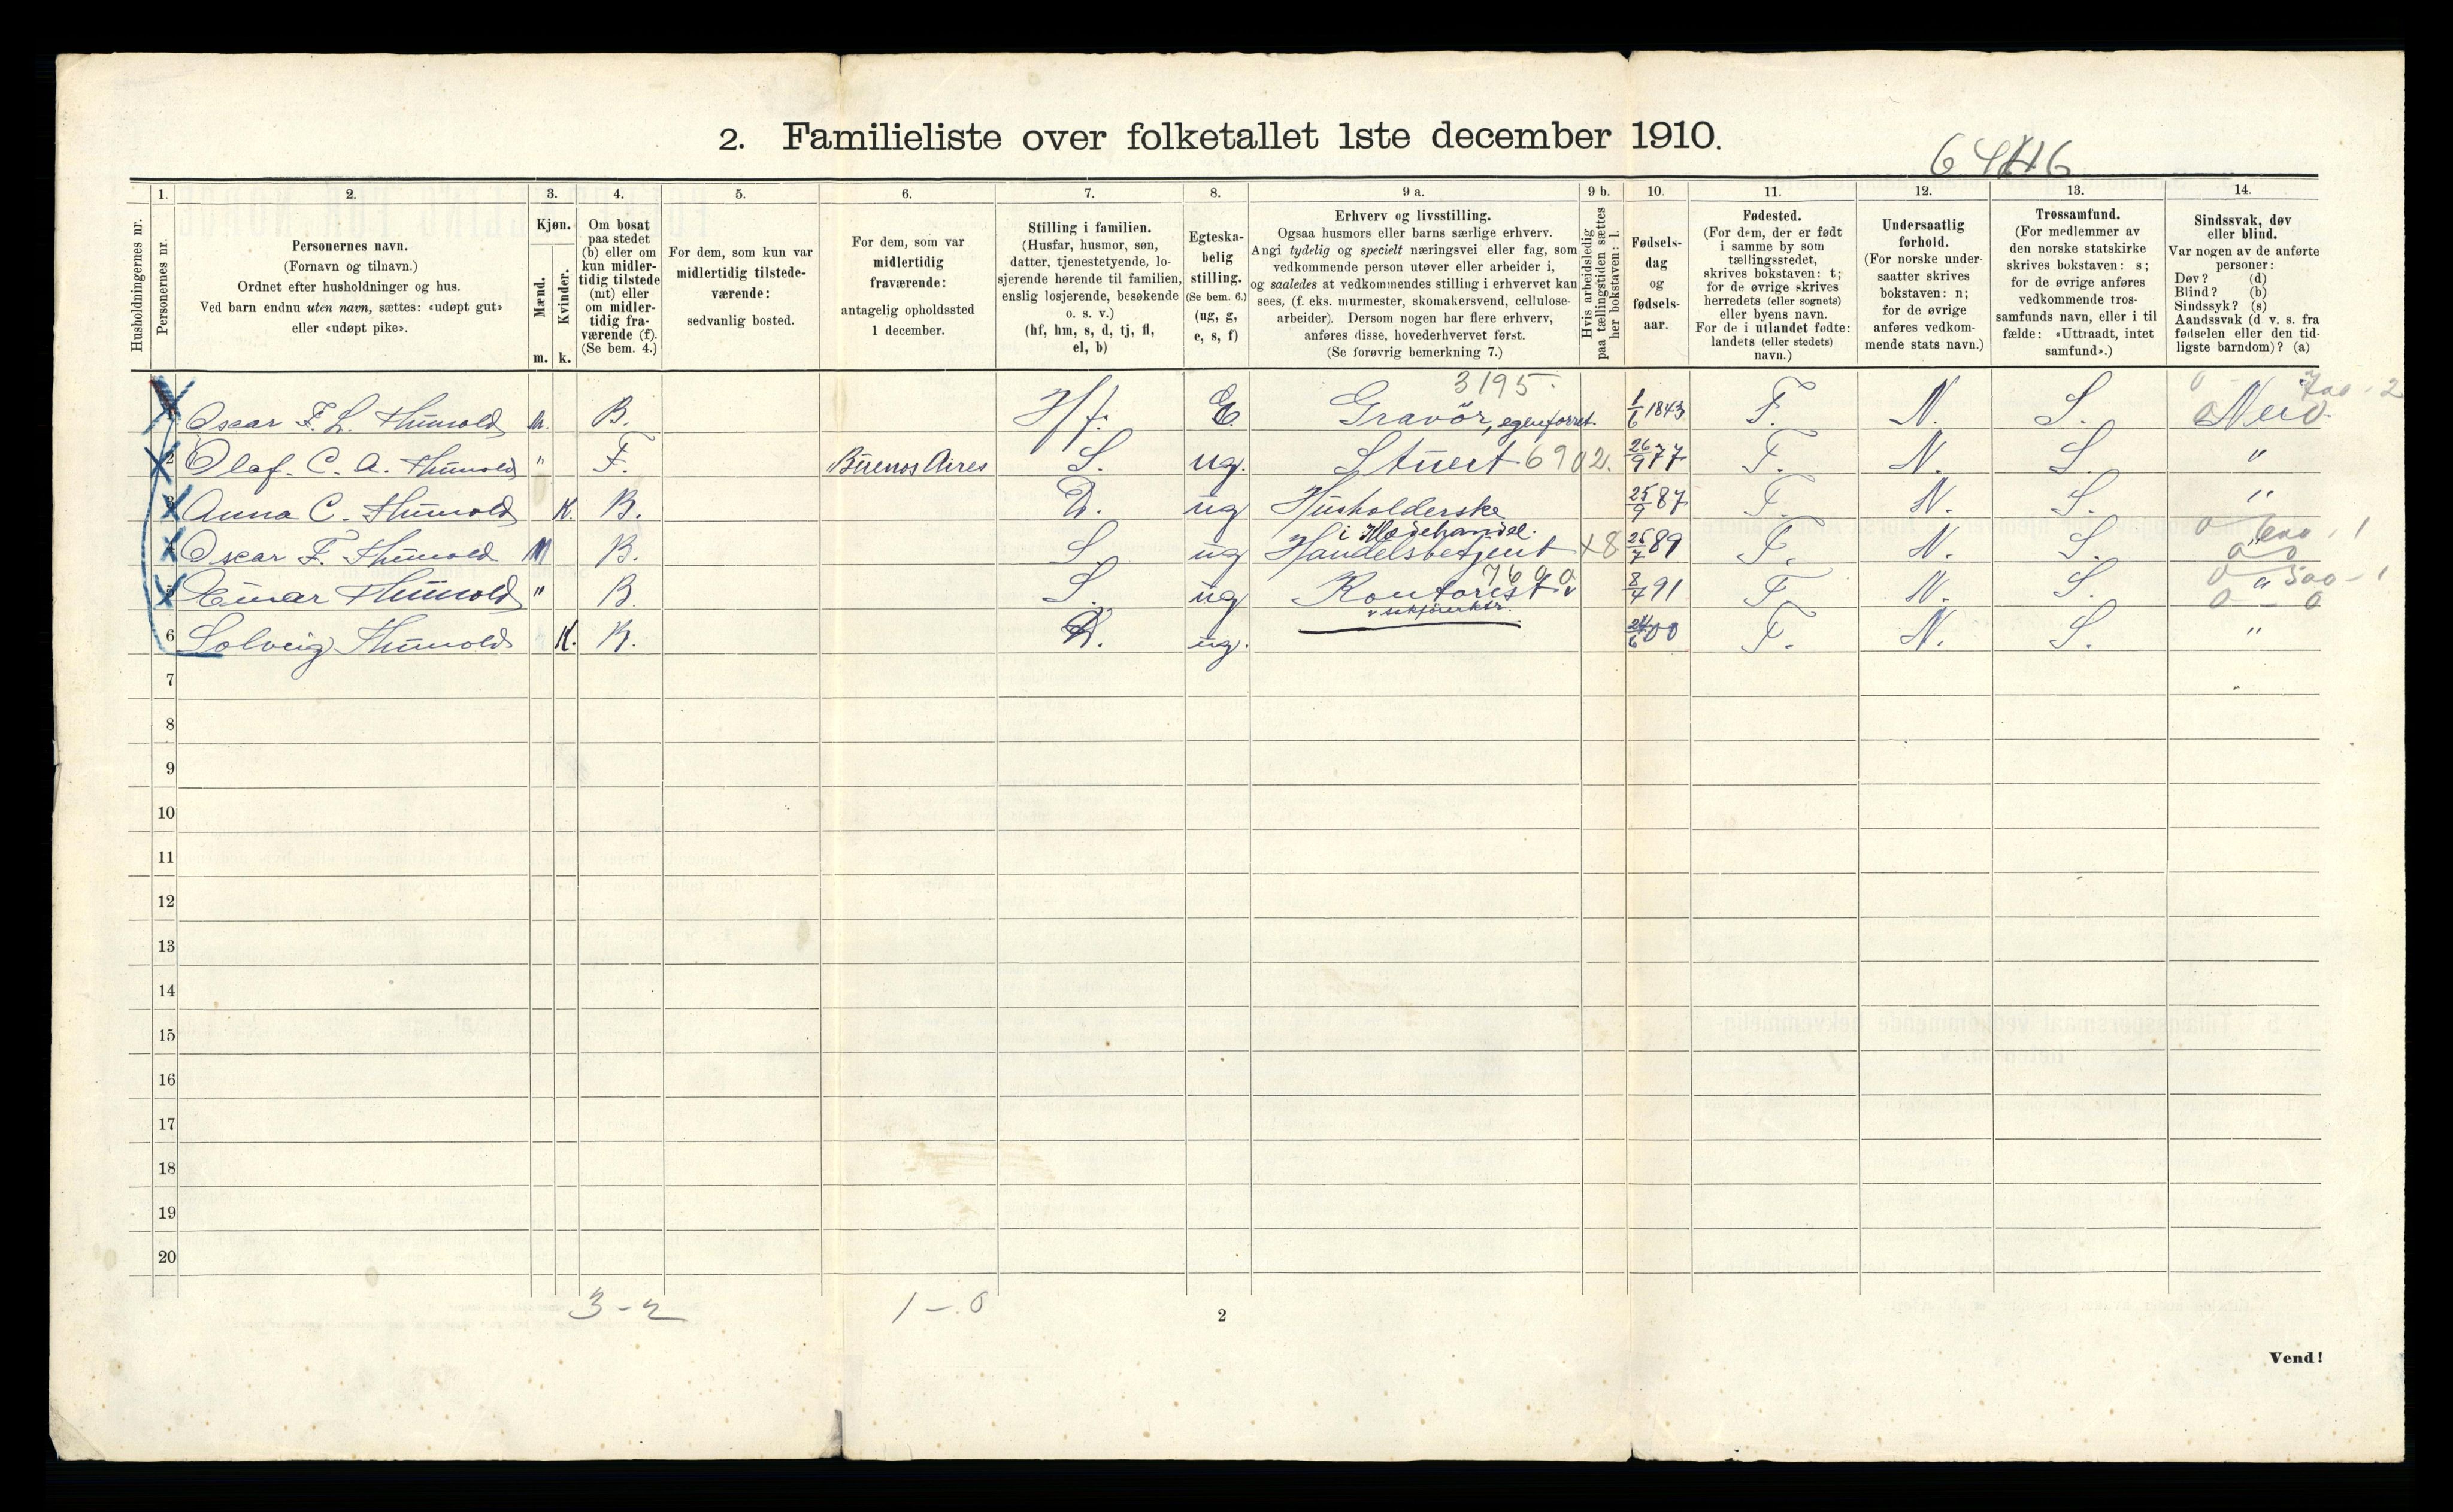 2. Familieliste over folketallet 1ste december 1910.
Husholdningernes nr.
1.
Personernes nr.
2.
Personernes navn.
(Fornavn og tilnavn.)
Ordnet efter husholdninger og hus.
Ved barn endnu uten navn, sættes: «udøpt gut»
eller «udøpt pike».
3.
Kjøn.
Mænd.
m.
Kvinder.
k.
4.
Om bosat
paa stedet
(b) eller om
kun midler-
tidig tilstede
(mt) eller
om midler-
tidig fra-
værende (f).
(Se bem. 4.)
5.
For dem, som kun var
midlertidig tilstede-
værende:
sedvanlig bosted.
6.
For dem, som var
midlertidig
fraværende:
antagelig opholdssted
1 december.
7.
Stilling i familien.
(Husfar, husmor, søn,
datter, tjenestetyende, lo-
sjerende hørende til familien,
enslig losjerende, besøkende
o. s. v.)
(hf, hm, s, d, tj, fl,
el, b)
8.
Egteska-
belig
stilling.
(Se bem. 6.)
(ug, g,
e, s, f)
9 a.
Erhverv og livsstilling.
Ogsaa husmors eller barns særlige erhverv.
Angi tydelig og specielt næringsvei eller fag, som
vedkommende person utøver eller arbeider i,
og saaledes at vedkommendes stilling i erhvervet kan
sees, (f. eks. murmester, skomakersvend, cellulose-
arbeider). Dersom nogen har flere erhverv,
anføres disse, hovederhvervet først.
(Se forøvrig bemerkning 7.)
9 b.
Hvis arbeidsledig
paa tællingstiden sættes
her bokstaven: l.
10.
Fødsels-
dag
og
fødsels-
aar.
11.
Fødested.
(For dem, der er født
i samme by som
tællingsstedet,
skrives bokstaven: t;
for de øvrige skrives
herredets (eller sognets)
eller byens navn.
For de i utlandet fødte:
landets (eller stedets)
navn.)
12.
Undersaatlig
forhold.
(For norske under-
saatter skrives
bokstaven: n;
for de øvrige
anføres vedkom-
mende stats navn.)
13.
Trossamfund.
(For medlemmer av
den norske statskirke
skrives bokstaven: s;
for de øvrige anføres
vedkommende tros-
samfunds navn, eller i til
fælde: «Uttraadt, intet
samfund».)
14.
Sindssvak, døv
eller blind.
Var nogen av de anførte
personer:
Døv? (d)
Blind? (b)
Sindssyk? (s)
Aandssvak (d v. s. fra
fødselen eller den tid-
ligste barndom)? (a)
3195
Oscar F. L. Thunold m. B. Hf. E. Gravör, egen forret. 1/6 1843 T. N. S. Nei
2 Olaf. C. A. Thunold " F. Buenos Aires S. ug. Stuert 6902. 26/9 77 T. N. S. "
3 Anna C. Thunold K. B. D. ug Husholderske 25/9 87 T. N. S. "
i Modehandel.
Oscar F. Thunold M B. S. ug Handelsbetjent 25/7 89 T. N. S. "
7600
5 Einar Thunold " B. S. ug Kontorist 8/4 91 T. N. S. "
6 Solveig Thunold K. B. D. ug. 24/6 00 T. N. S. "
7
8
9
10
11
12
13
14
15
16
17
18
19
20
3-2
1-0
2
Vend!